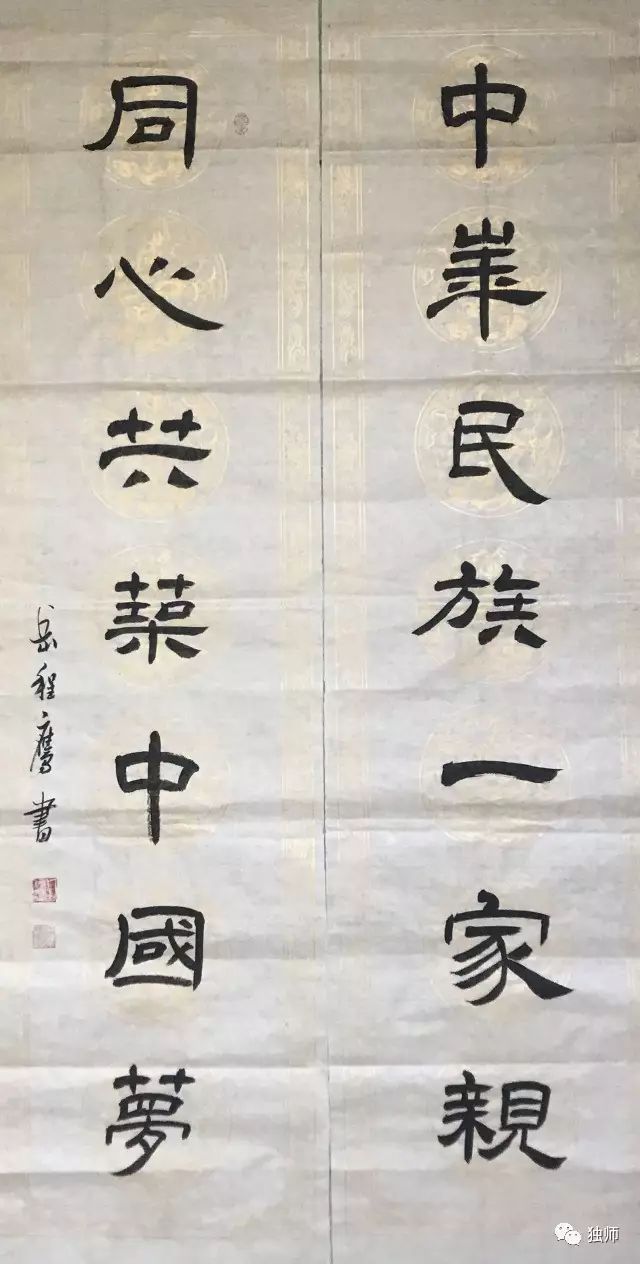 中華民族一家親
同心共築中國夢
岳程鹰書
独师